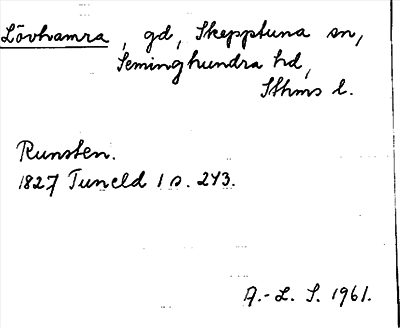 Lövhamra, gd, Skepptuna sn,
Seminghundra hd,
Sthms l.
Runsten.
1827 Tuneld 1 s. 243.
A.-L. S. 1961.